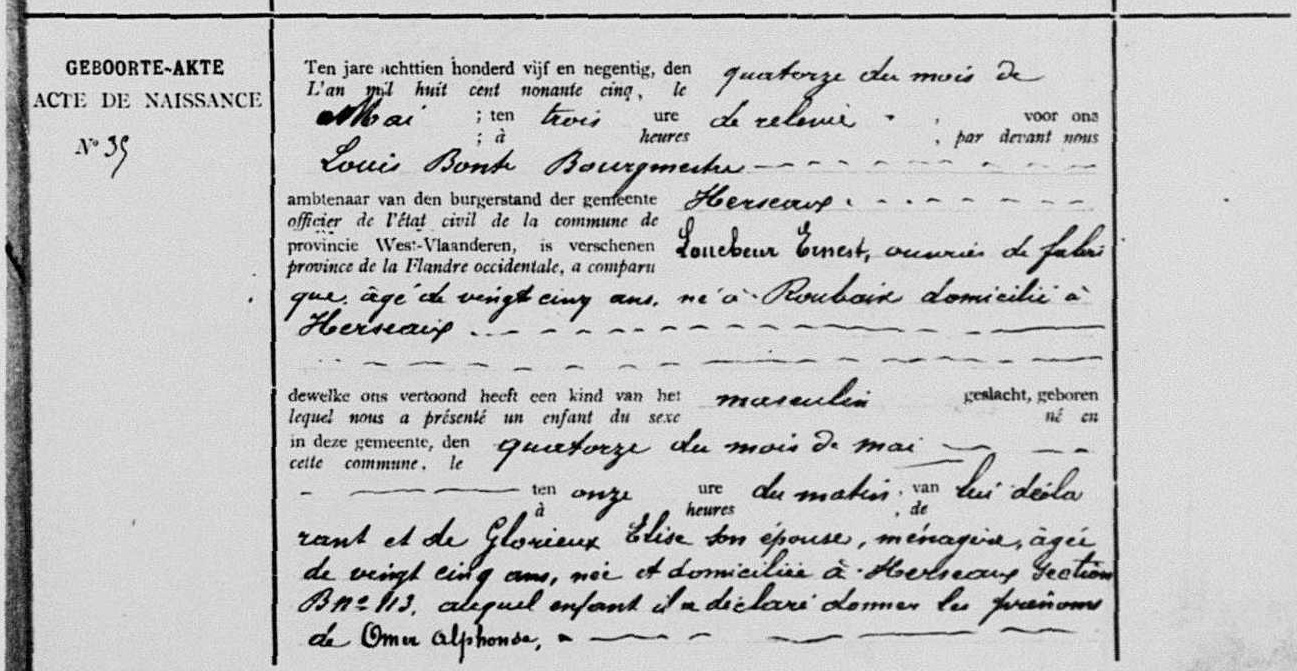 GEBOORTE-AKTE
ACTE DE NAISSANCE
N° 35
Ten jare achttien honderd vijf en negentig, den
L'an mil huit cent nonante cinq, le quatorze du mois de
Mai ; ten trois ure de relevée , voor ons
; à heures , par devant nous
Louis Bonte Bourgmestre
ambtenaar van den burgerstand der gemeente Herseaux
officier de l'état civil de la commune de
provincie West-Vlaanderen, is verschenen Louebeur Ernest, ouvrier de fabri
province de la Flandre occidentale, a comparu
que, âgé de vingt cinq ans, né à Roubaix domicilié à
Herseaux
dewelke ons vertoond heeft een kind van het masculin geslacht, geboren
lequel nous a présenté un enfant du sexe né en
in deze gemeente, den quatorze du mois de mai
cette commune, le
ten onze ure du matin, van lui décla
à heures , de
rant et de Glorieux Elise son épouse, ménagère, âgée
de vingt cinq ans, née et domiciliée à Herseaux Section
B n° 113, auquel enfant il a déclaré donner les prénoms
de Omer Alphonse,